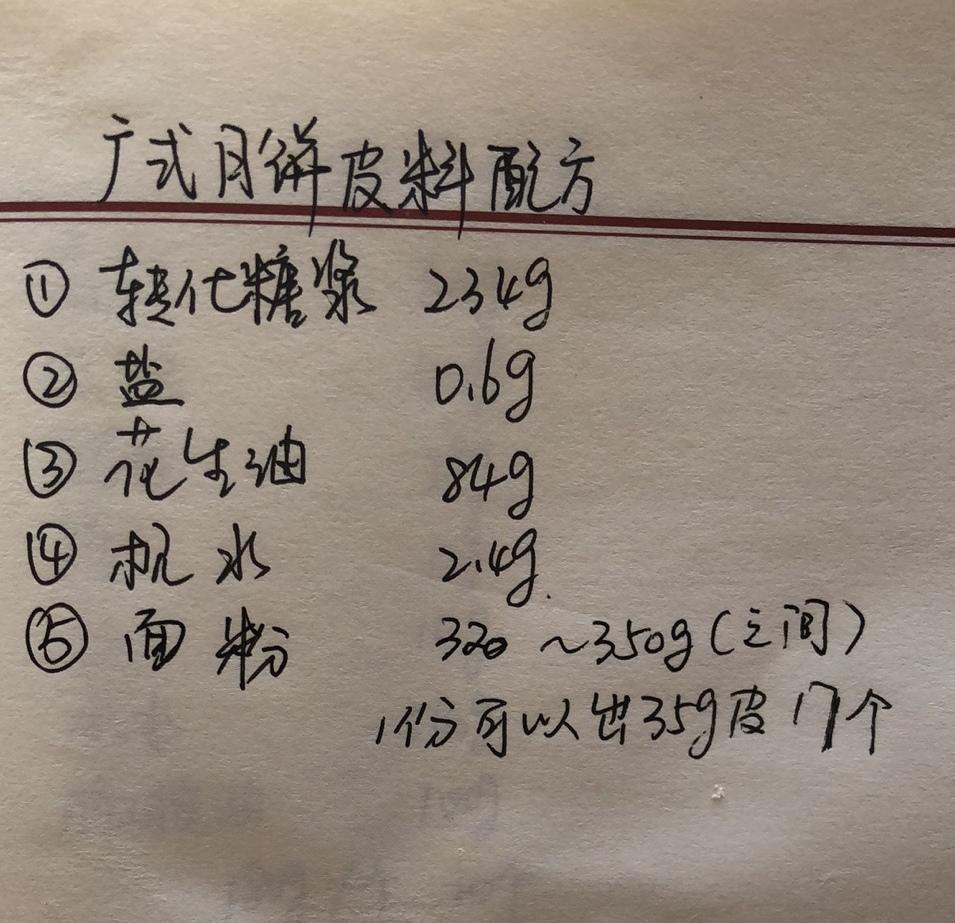 广式月饼皮料配方
① 转化糖浆 234g
② 盐 0.6g
③ 花生油 84g
④ 枧水 2.4g.
⑤ 面粉 320~350g(之间)
1份可以出35g皮17个